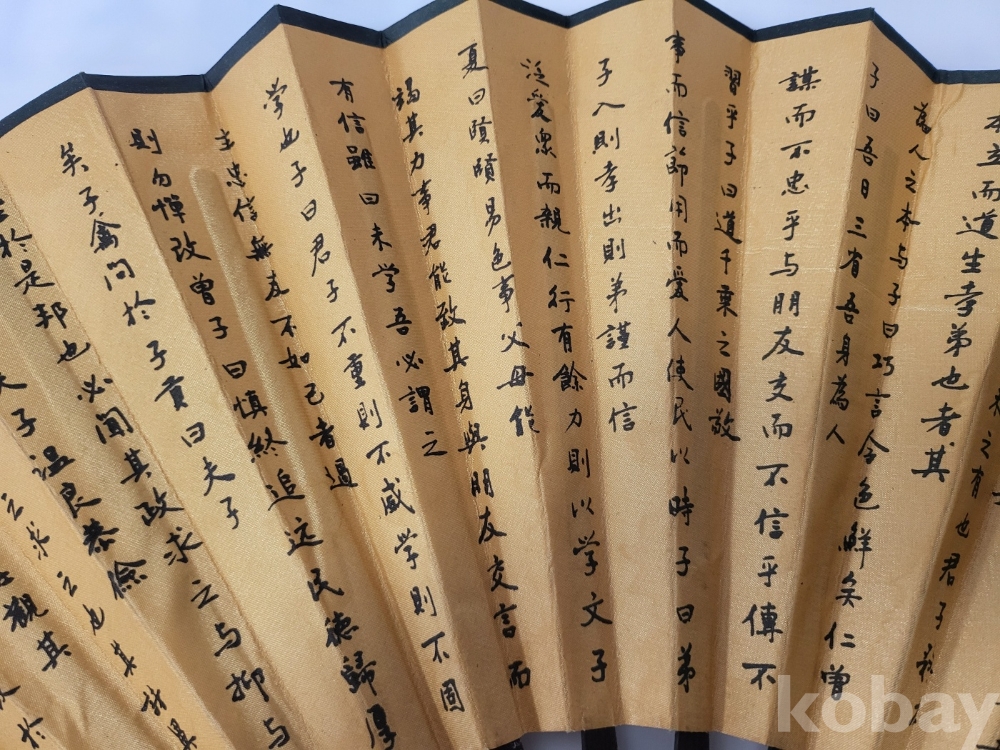 之有也君子務
本立而道生孝弟也者其
為人之本与子曰巧言令色鮮矣仁曾
子曰吾日三省吾身為人
謀而不忠乎与朋友交而不信乎傳不
習乎子曰道千乘之國敬
事而信節用而爱人使民以時子曰弟
子入則孝出則弟謹而信
泛爱衆而親仁行有餘力則以学文子
夏曰賢賢易色事父母能
竭其力事君能致其身與朋友交言而
有信雖曰未学吾必謂之
学也子曰君子不重則不威学則不固
主忠信無友不如己者過
則勿憚改曾子曰慎終追远民德歸厚
矣子禽問於子貢曰夫子
至於是邦也必聞其政求之与抑与
夫子温良恭儉
之求之也其諸異
觀其
於
kobay